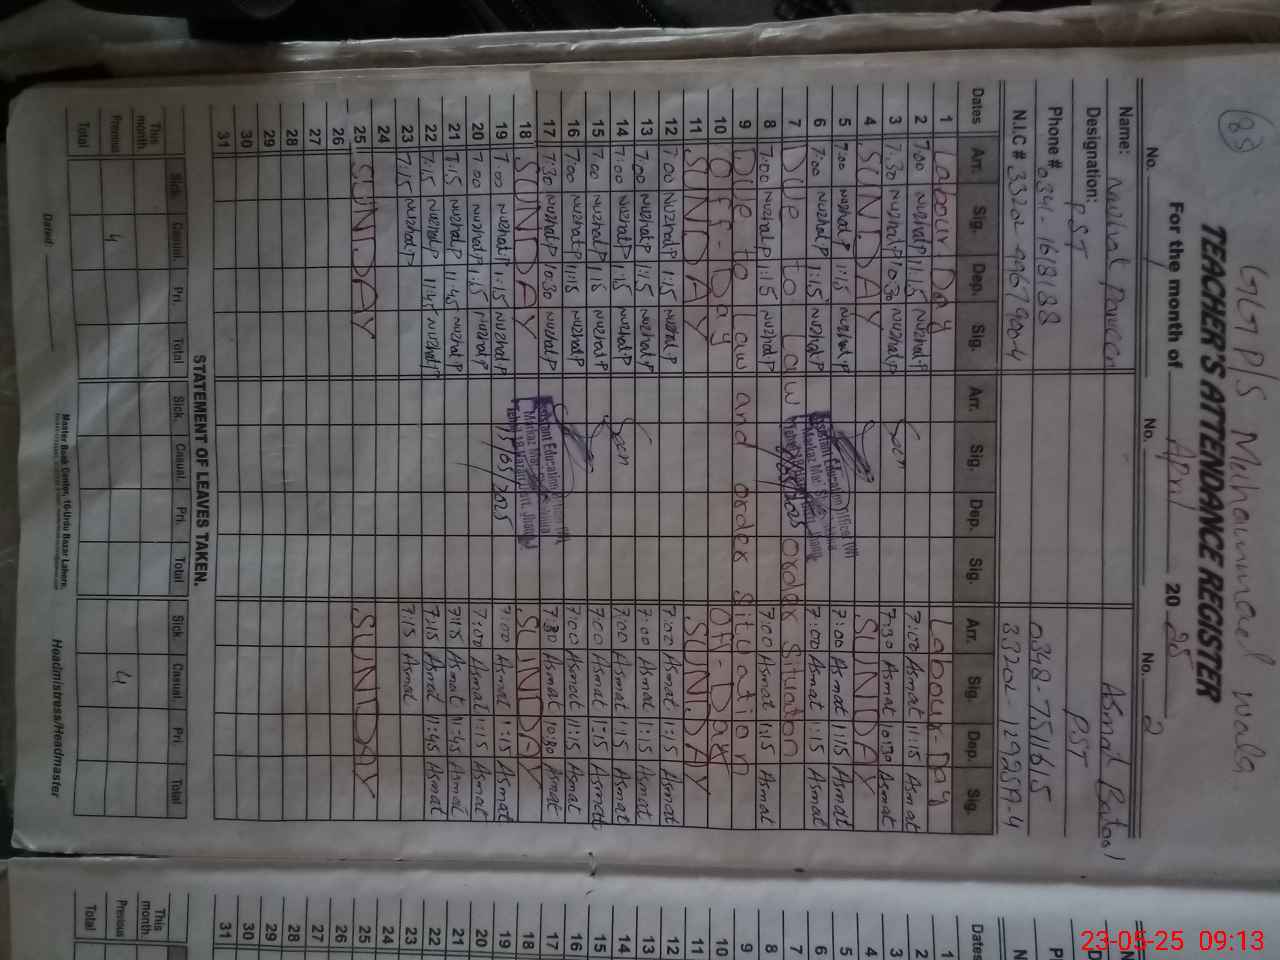 85
GGP/S Mohammad wala
TEACHER'S ATTENDANCE REGISTER
For the month of April 2025
No. 1 No. No. 2
Name: Nuzhat Parveen Asmat Batool
Designation: PST PST
Phone # 0341-1618188 0348-7511615
N.I.C #
Dates Arr. Sig. Dep. Sig. Arr. Sig. Dep. Sig. Arr. Sig. Dep. Sig.
1 Labour Day Labour Day
2 7:00 Nuzhat P 11:15 Nuzhat P 7:00 Asmat 11:15 Asmat
3 7:30 Nuzhat P 10:30 Nuzhat P Seen 7:30 Asmat 10:30 Asmat
4 SUNDAY SUNDAY
5 7:00 Nuzhat P 1:15 Nuzhat P 7:00 Asmat 1:15 Asmat
6 7:00 Nuzhat P 1:15 Nuzhat P 7:00 Asmat 1:15 Asmat
7 Due to Law order Situation
8 7:00 Nuzhat P 1:15 Nuzhat P 7:00 Asmat 1:15 Asmat
9 Due to Law and order situation
10 Off-Day Off-Day
11 SUNDAY SUNDAY
12 7:00 Nuzhat P 1:15 Nuzhat P 7:00 Asmat 1:15 Asmat
13 7:00 Nuzhat P 1:15 Nuzhat P 7:00 Asmat 1:15 Asmat
14 7:00 Nuzhat P 1:15 Nuzhat P Seen 7:00 Asmat 1:15 Asmat
15 7:00 Nuzhat P 1:15 Nuzhat P 7:00 Asmat 1:15 Asmat
16 7:00 Nuzhat P 11:15 Nuzhat P 7:00 Asmat 11:15 Asmat
17 7:30 Nuzhat P 10:30 Nuzhat P Assistant Education Officer 7:30 Asmat 10:30 Asmat
18 SUNDAY SUNDAY
19 7:00 Nuzhat P 1:15 Nuzhat P 19/05/2025 7:00 Asmat 1:15 Asmat
20 7:00 Nuzhat P 1:15 Nuzhat P 7:00 Asmat 1:15 Asmat
21 7:15 Nuzhat P 11:45 Nuzhat P 7:15 Asmat 11:45 Asmat
22 7:15 Nuzhat P 11:45 Nuzhat P 7:15 Asmat 11:45 Asmat
23 7:15 Nuzhat P 7:15 Asmat
24
25 SUNDAY SUNDAY
26
27
28
29
30
31
STATEMENT OF LEAVES TAKEN.
Sick. Casual. Pri. Total Sick. Casual. Pri. Total Sick Casual. Pri Total
This month
Previous 4 4
Total
Dated:
Master Book Center, 16-Urdu Bazar Lahore.
Headmistress/Headmaster
Dates
1
2
3
4
5
6
7
8
9
10
11
12
13
14
15
16
17
18
19
20
21
22
23
24
25
26
27
28
29
30
31
This month.
Previous
Total
23-05-25 09:13